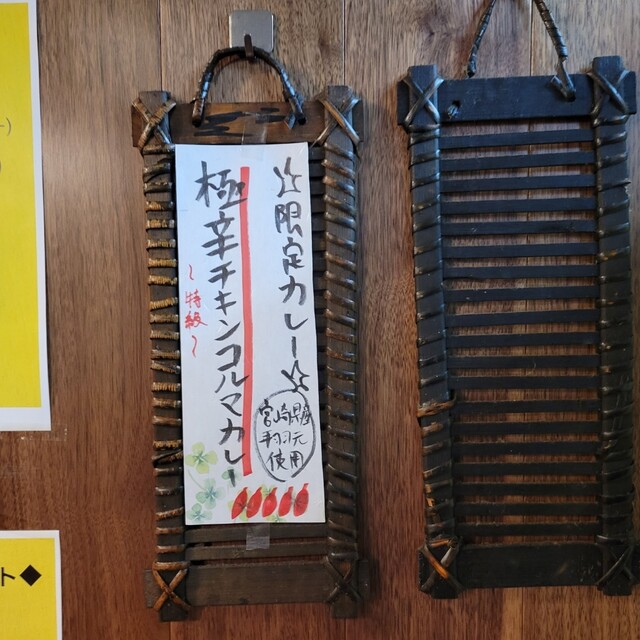 ☆限定カレー☆
極辛チキンコルマカレー
〜特級〜
宮崎県産
使用
ト◆